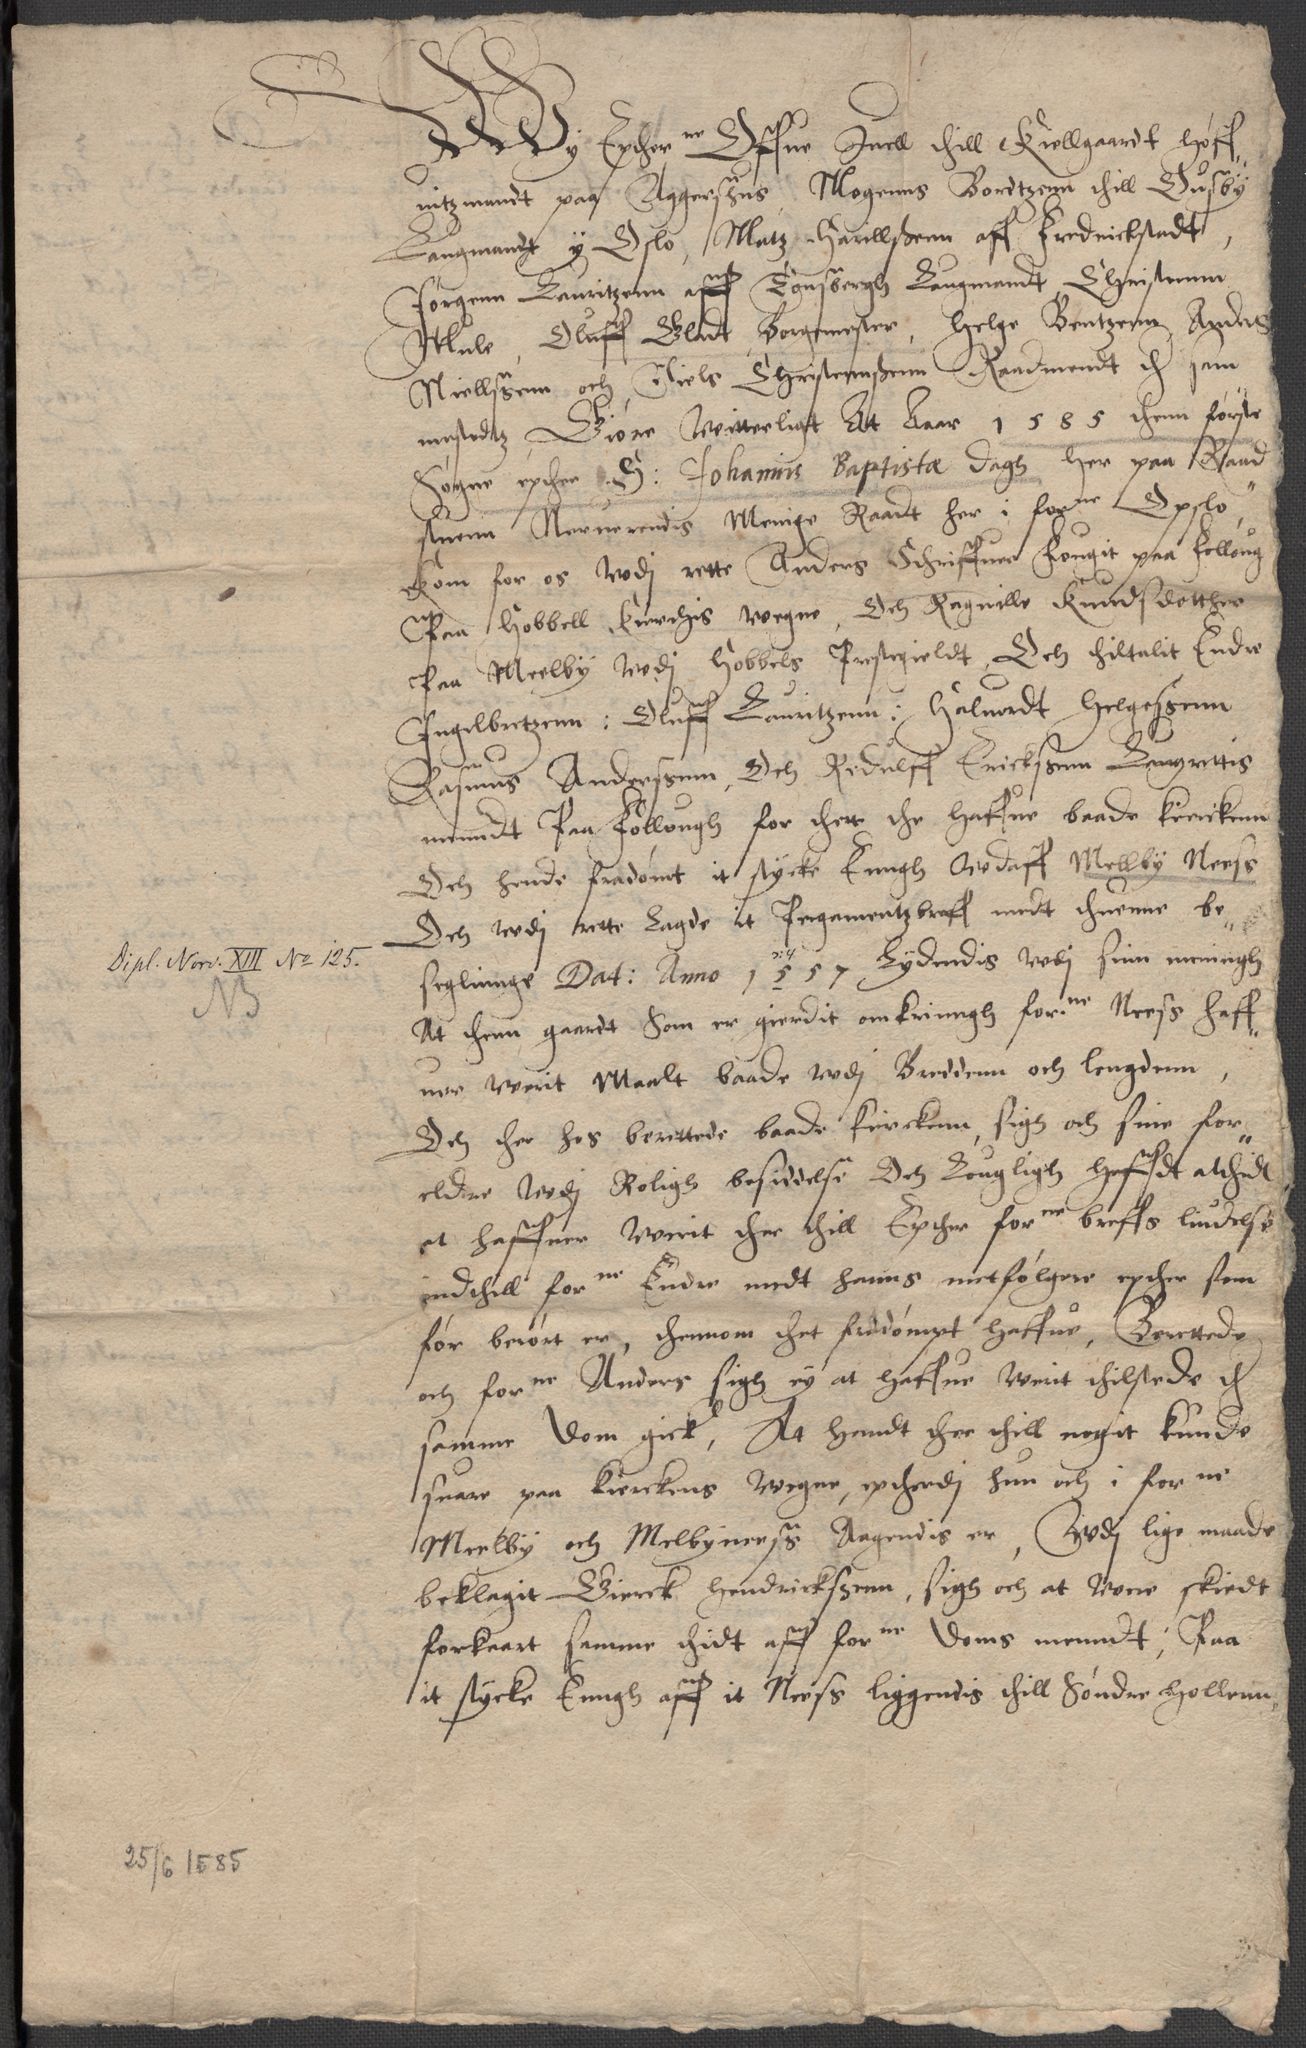 Wy Epther ne Offue Juell thill Kiellgaardt høff„
uitzmandt paa Aggershus, Mogenns Bordtzenn thill Dusby
Laugmandt y Oslo, Matz Harillssenn aff Fredrickstadt,
Jørgenn Lauritzenn aff Tønsbergh Laugmandt Christenn
Mule, Oluff Glad Borgemester, Helge Bentzenn Anders
Niellssenn och Niels Christennssenn Raadmendt th sam
mestedtz Giøre Witterligt Att Aar 1585 thenn første
Søgne epther S: Johannis Baptistæ dagh her paa Raad
stuenn Neruerendis Menige Raadt her i for ne Opslo„
Kom for os Wdj rette Anders Schriffuer Fougit paa Folloug
Paa Hobbell Kierckis wegne, Och Ragnille Knudsdotther
Paa Meelby Wdj Hobbels Prestegieldt, Och thiltalit Endre
Ingelbretzenn: Oluff Lauritzenn: Haluordt Helgessenn
Rasmus Anderssenn, Och Redulff Erickssenn Laugrettis
menndt Paa Follough for thett the haffue baade kierckenn
Och hende fradømt it stycke Enngh Wdaff Mellby Neess
Och Wdj rette Lagde it Pergamentzbreff medt thuenne be„
seglinnge Dat: Anno 1557 Lydendis Wdj sinn meningh
ɔ: 4
At thenn gaardt som er gierdit omkringh for ne Neess haff„
uer Werit Maalt baade Wdj Breddenn och lengdenn,
Och ther hos berettede baade kierckenn, sigh och sine for„
eldre Wdj Roligh besiddelse Och Lougligh Heffdt altthidt
at haffuer Werit ther thill Epther for ne breffs liudelse
indthill for ne Endre medt hanns metfølgere epther som
før berørt er, thennom thet fradømpt haffue, Berettede
och for ne Anders sigh ey at haffue Werit thilstede th
samme Dom gick, At handt ther thill nogit kunde
suare paa kierckens Wegne, eptherdj hun och i for ne
Meelby och Melbyneess Aagendis er, Wdj lige maade
beklagit Gierck Hendrickssenn, sigh och at Were skiedt
forkaart samme thidt aff for ne Doms menndt, Paa
it stycke Enngh aff it Neess liggendis thill Søndre Hollenn
Dipl. Norv. XIII No 125.
NB
25/6 1585